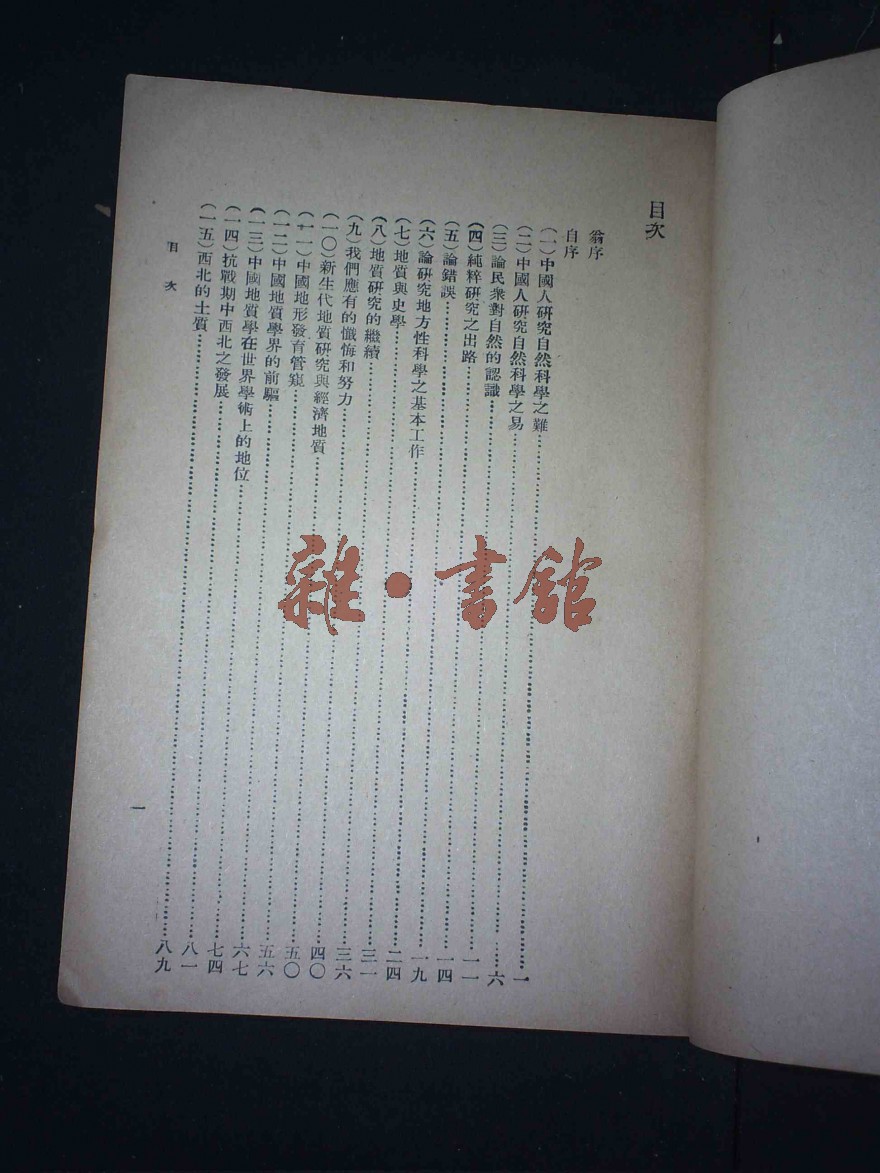 目次
翁序
自序
(一)中國人研究自然科學之難……一
(二)中國人研究自然科學之易……六
(三)論民衆對自然的認識……一一
(四)純粹研究之出路……一四
(五)論錯誤……一九
(六)論研究地方性科學之基本工作……二四
(七)地質與史學……三一
(八)地質研究的繼續……三六
(九)我們應有的懺悔和努力……四〇
(一〇)新生代地質研究與經濟地質……五〇
(一一)中國地形發育管窺……五六
(一二)中國地質學界的前驅……六七
(一三)中國地質學在世界學術上的地位……七四
(一四)抗戰期中西北之發展……八一
(一五)西北的土質……八九
目次
一
雜·書館